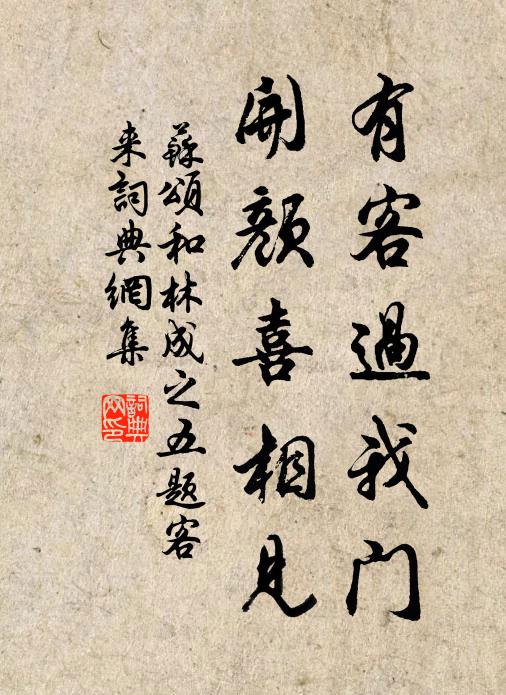 有客過我門
開顏喜相見
蘇頌和林成之五題客
来詞典網集
詞典网印